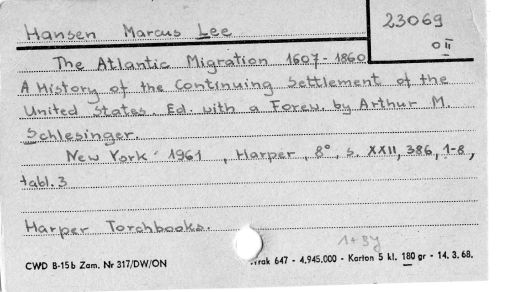 Hansen Marcus Lee
23069
O II
The Atlantic Migration 1607-1860
A History of the Continuing Settlement of the
United States. Ed. with a Forew. by Arthur M.
Schlesinger.
New York 1961, Harper, 8°, s. XXII, 386, 1-8,
tabl. 3
Harper Torchbooks.
CWD B-15b Zam. Nr 317/DW/ON
647 - 4.945.000 - Karton 5 kl. 180 gr - 14. 3. 68.